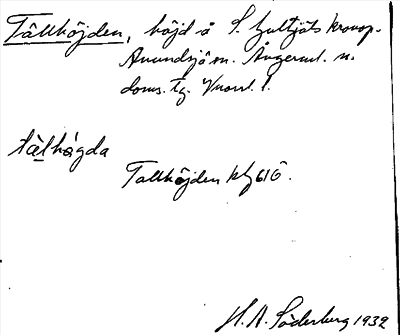 Tållhöjden, höjd å S. Gultjäls kronop.
Anundsjö sn. Ångerml. n.
doms. tg.
tålhögda
Tallhöjden kbl 61Ö.
H. A. Söderberg 1932